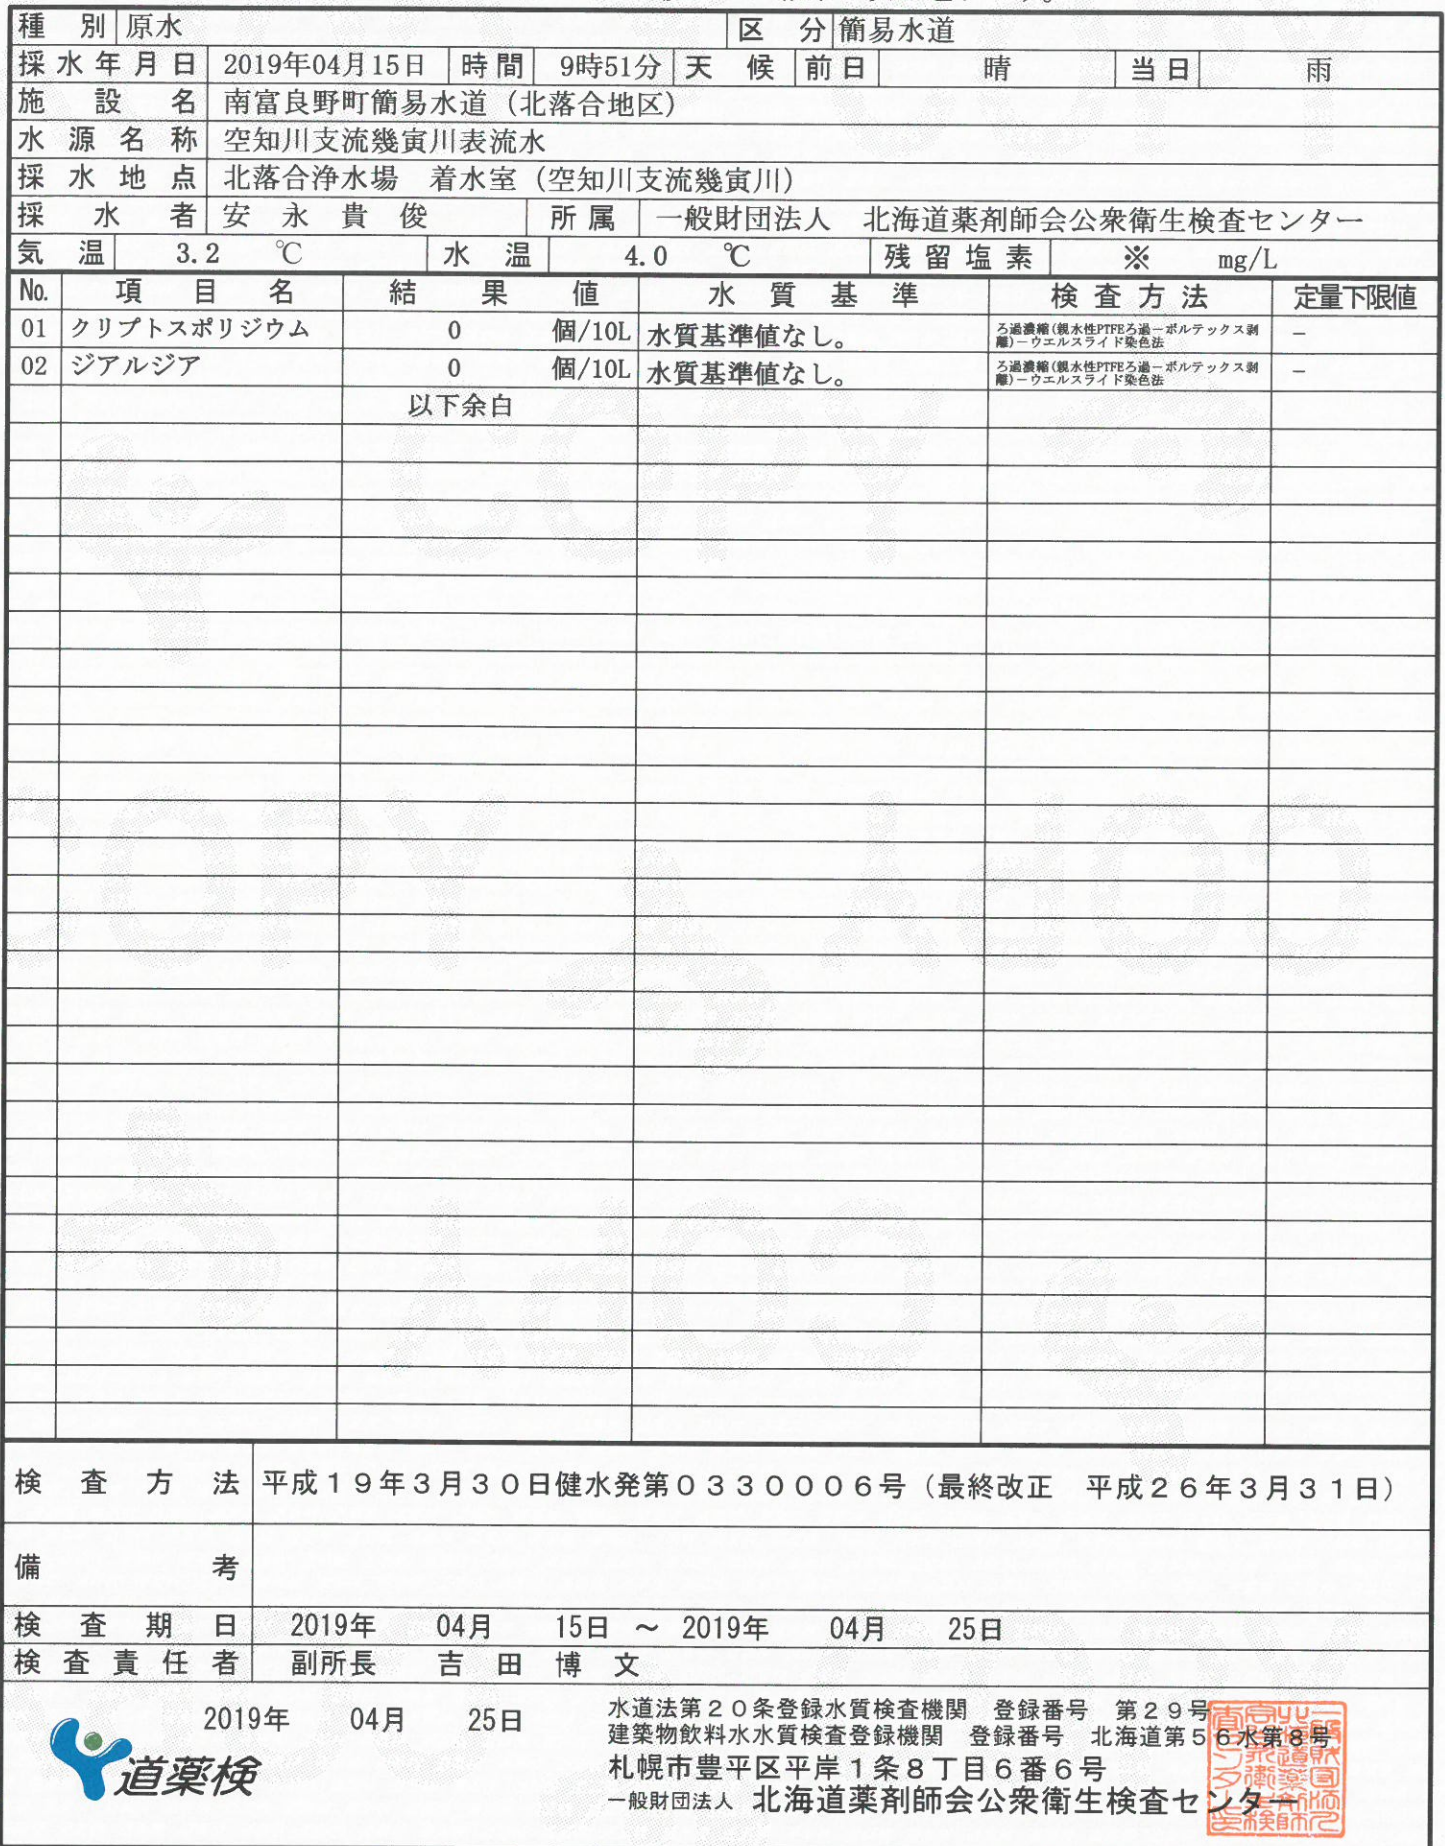 種別 原水 区分 簡易水道
採水年月日 2019年04月15日 時間 9時51分 天候 前日 晴 当日 雨
施設名 南富良野町簡易水道（北落合地区）
水源名称 空知川支流幾寅川表流水
採水地点 北落合浄水場　着水室（空知川支流幾寅川）
採水者 安永貴俊 所属 一般財団法人　北海道薬剤師会公衆衛生検査センター
気温 3.2 ℃ 水温 4.0 ℃ 残留塩素 ※ mg/L
No. 項目名 結果値 水質基準 検査方法 定量下限値
01 クリプトスポリジウム 0 個/10L 水質基準値なし。 ろ過濃縮(親水性PTFEろ過－ボルテックス剥離)－ウエルスライド染色法 －
02 ジアルジア 0 個/10L 水質基準値なし。 ろ過濃縮(親水性PTFEろ過－ボルテックス剥離)－ウエルスライド染色法 －
以下余白
COPY
COPY COPY
COPY
検査方法 平成１９年３月３０日健水発第０３３０００６号（最終改正　平成２６年３月３１日）
備考
検査期日 2019年 04月 15日 ～ 2019年 04月 25日
検査責任者 副所長 吉田博文
2019年 04月 25日
道薬検
水道法第２０条登録水質検査機関　登録番号　第２９号
建築物飲料水水質検査登録機関　登録番号　北海道第５６水第８号
札幌市豊平区平岸１条８丁目６番６号
一般財団法人 北海道薬剤師会公衆衛生検査センター